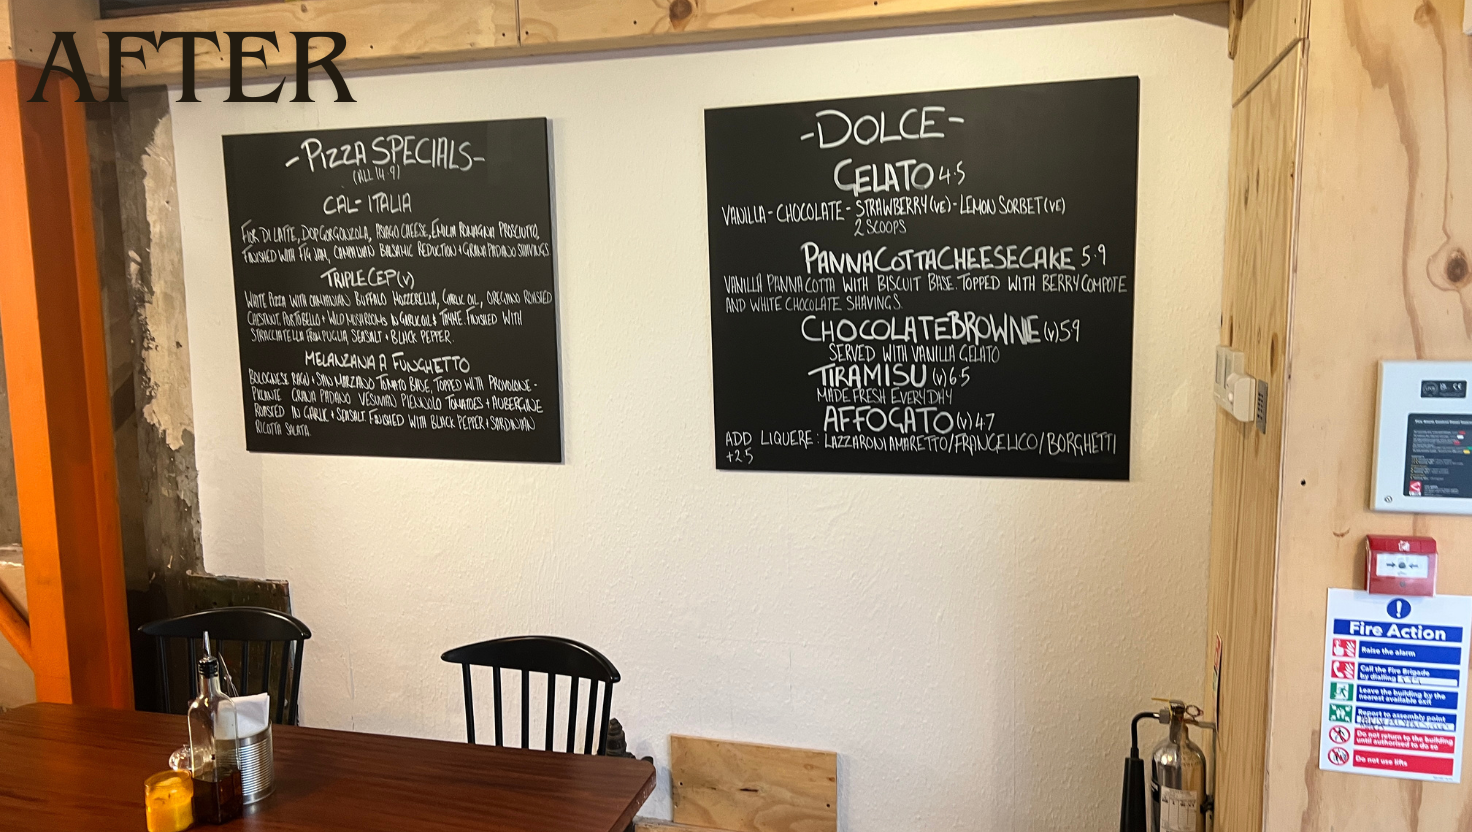 AFTER
-PIZZA SPECIALS-
(ALL 14.9)
CAL-ITALIA
FIOR DI LATTE, DOP GORGONZOLA, ASIAGO CHEESE, EMILIA ROMAGNA PROSCIUTTO,
FINISHED WITH FIG JAM, CAMPANIAN BALSAMIC REDUCTION + GRANA PADANO SHAVINGS
TRIPLE CEP (V)
WHITE PIZZA WITH CAMPANIAN BUFFALO MOZZERELLA, GARLIC OIL, OREGANO ROASTED
CHESTNUT, PORTOBELLO + WILD MUSHROOMS IN GARLIC OIL & THYME. FINISHED WITH
STRACCIATELLA FROM PUGLIA, SEASALT + BLACK PEPPER.
MELANZANIA A FUNGHETTO
BOLOGNESE RAGU + SAN MARZANO TOMATO BASE, TOPPED WITH PROVOLONE-
PICANTE GRANA PADANO VESUVIAN PIENNOLO TOMATOES + AUBERGINE
ROASTED IN GARLIC + SEASALT. FINISHED WITH BLACK PEPPER + SARDINIAN
RICOTTA SALATA.
-DOLCE-
GELATO 4.5
VANILLA - CHOCOLATE - STRAWBERRY (VE) - LEMON SORBET (VE)
2 SCOOPS
PANNACOTTA CHEESECAKE 5.9
VANILLA PANNA COTTA WITH BISCUIT BASE. TOPPED WITH BERRY COMPOTE
AND WHITE CHOCOLATE SHAVINGS
CHOCOLATE BROWNIE (V) 5.9
SERVED WITH VANILLA GELATO
TIRAMISU (V) 6.5
MADE FRESH EVERYDAY
AFFOGATO (V) 4.7
ADD LIQUERE: LAZZARONI AMARETTO/FRANGELICO/BORGHETTI
+2.5
Fire Action
Raise the alarm
Call the Fire Brigade
by dialling
Leave the building by the
nearest available exit
Report to assembly point
Do not return to the building
until authorized to do so
Do not use lifts